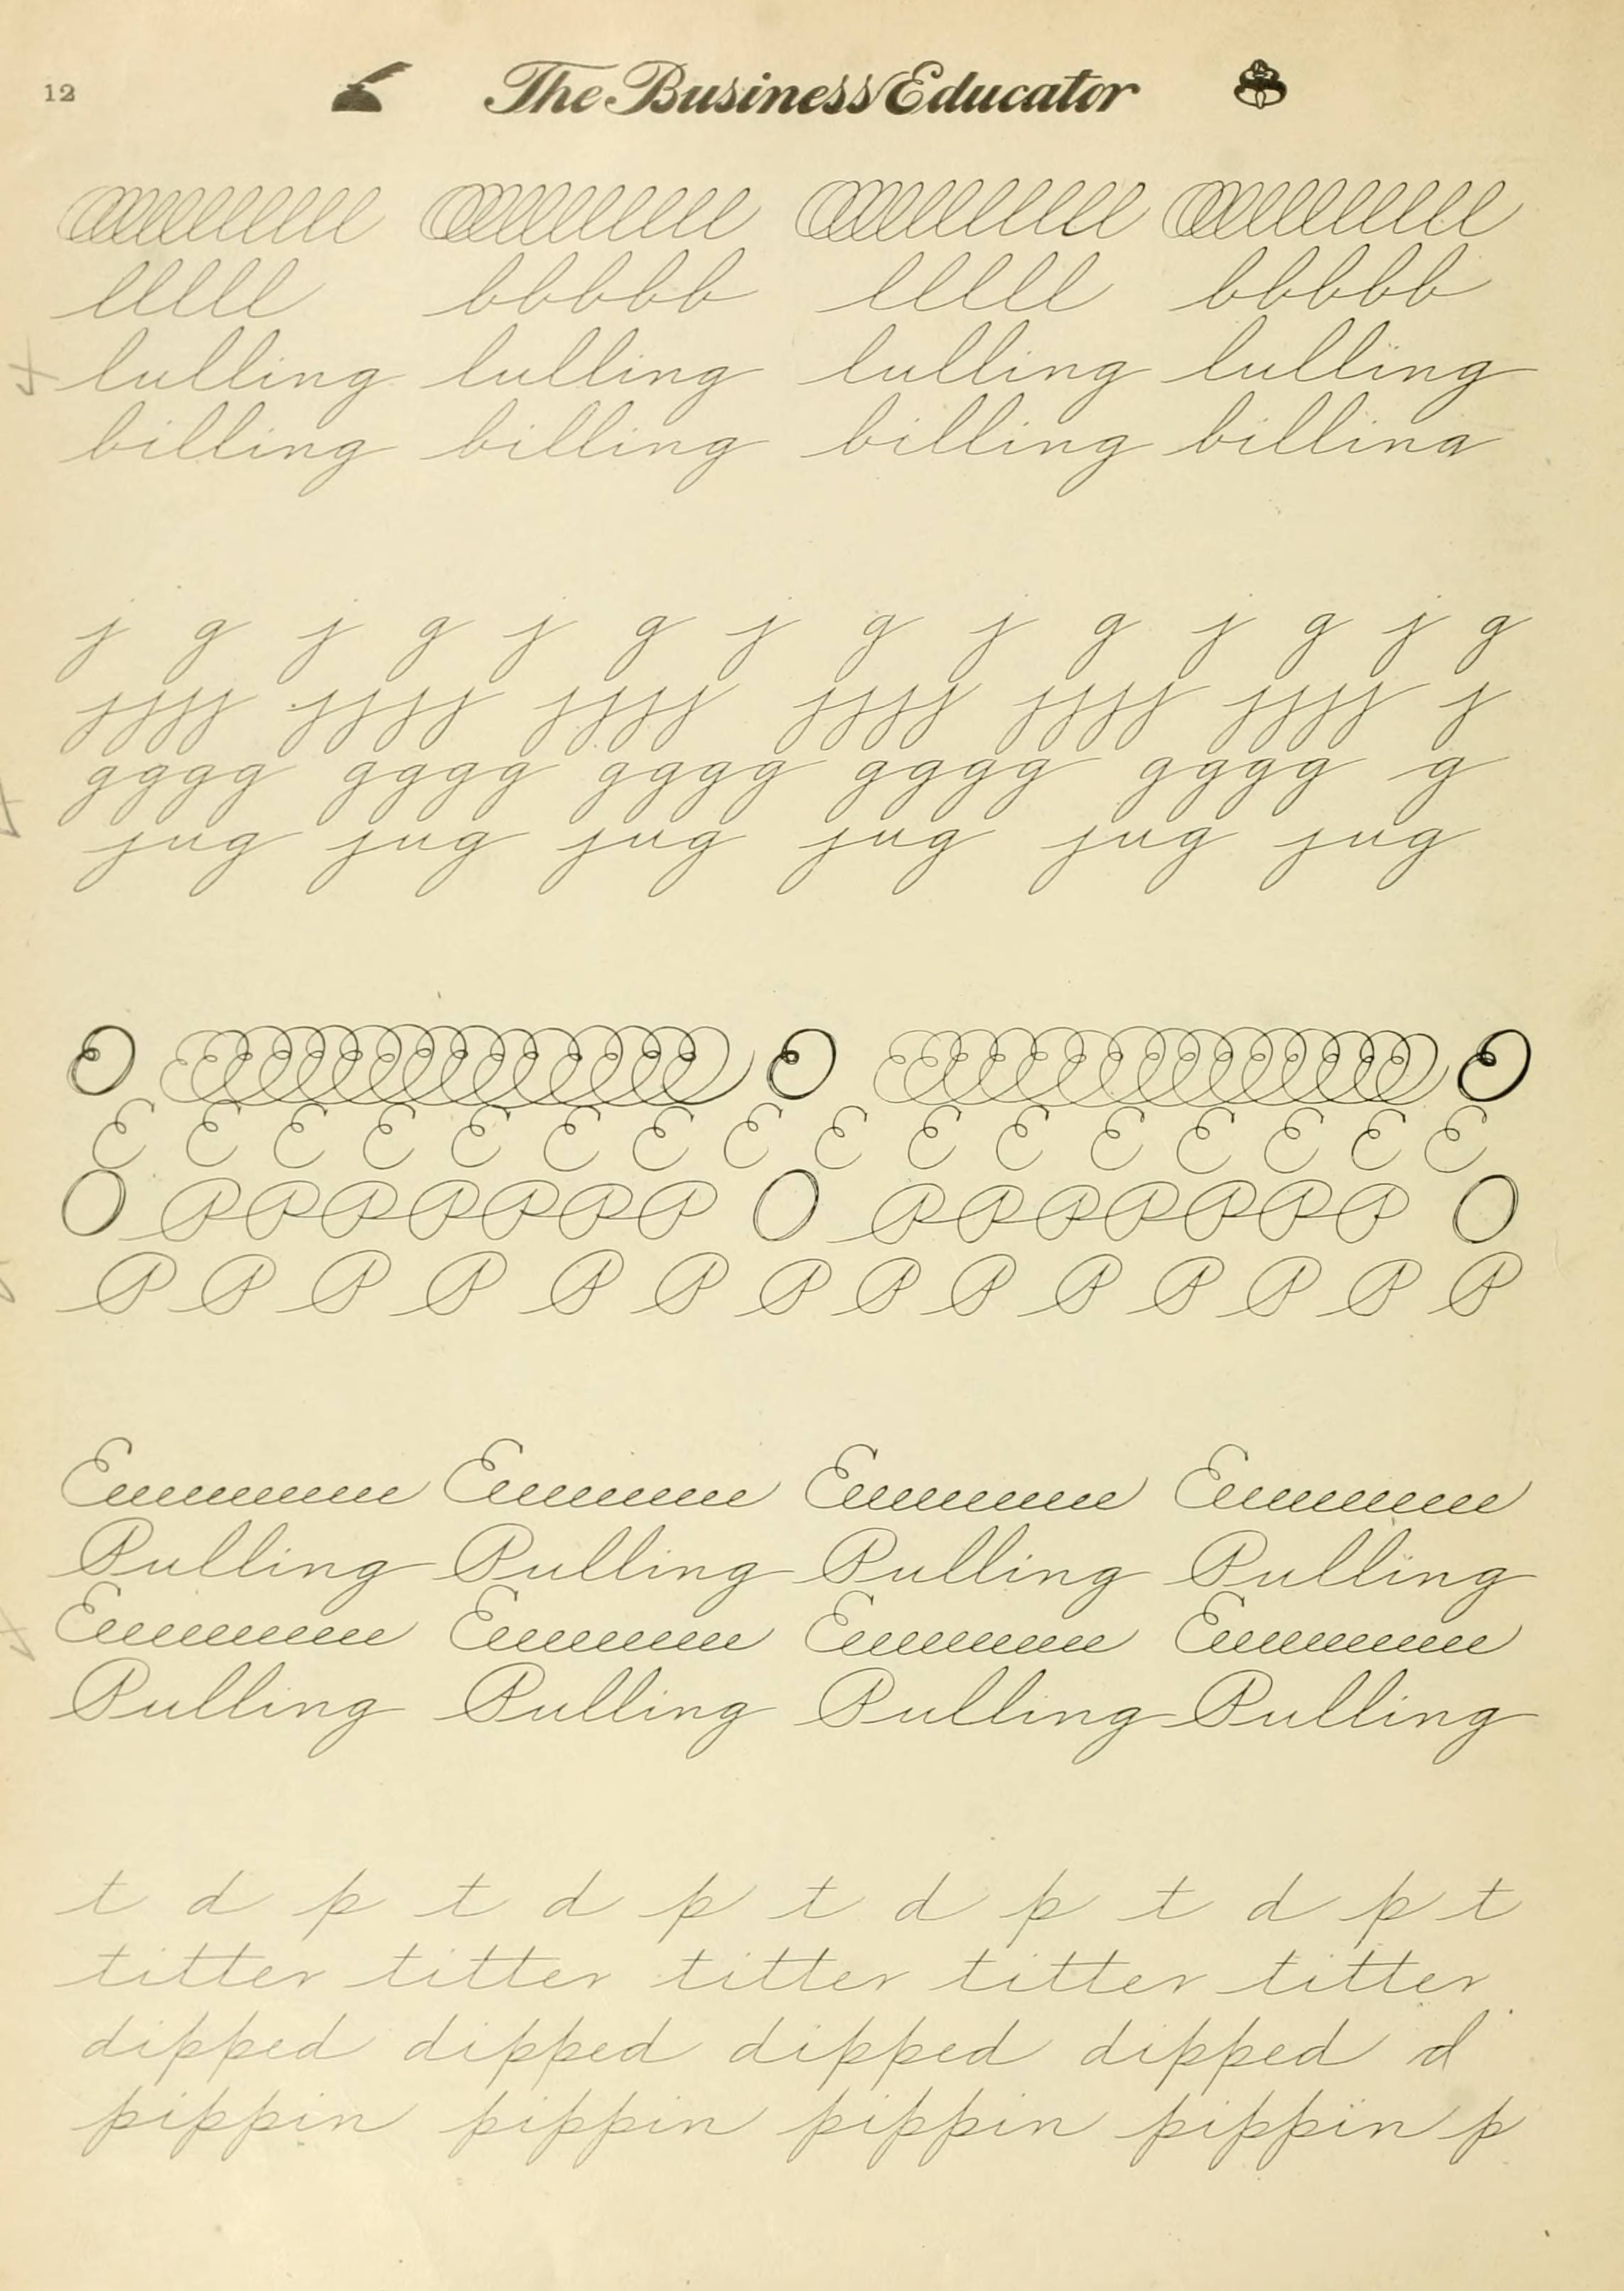 12 The Business Educator
lllll bbbbb lllll bbbbb
lulling lulling lulling lulling
billing billing billing billina
j g j g j g j g j g j g j g
jjjj jjjj jjjj jjjj jjjj jjjj j
gggg gggg gggg gggg gggg g
jug jug jug jug jug jug
E E E E E E E E E E E E E E E E
O P P P P P P P O P P P P P P P O
P P P P P P P P P P P P P P
Eeeeeeeeeee Eeeeeeeeee Eeeeeeeeeee Eeeeeeeeeee
Pulling Pulling Pulling Pulling
Eeeeeeeeeee Eeeeeeeeee Eeeeeeeeeee Eeeeeeeeeee
Pulling Pulling Pulling Pulling
t d p t d p t d p t d p t
titter titter titter titter titter
dipped dipped dipped dipped d
pippin pippin pippin pippin p